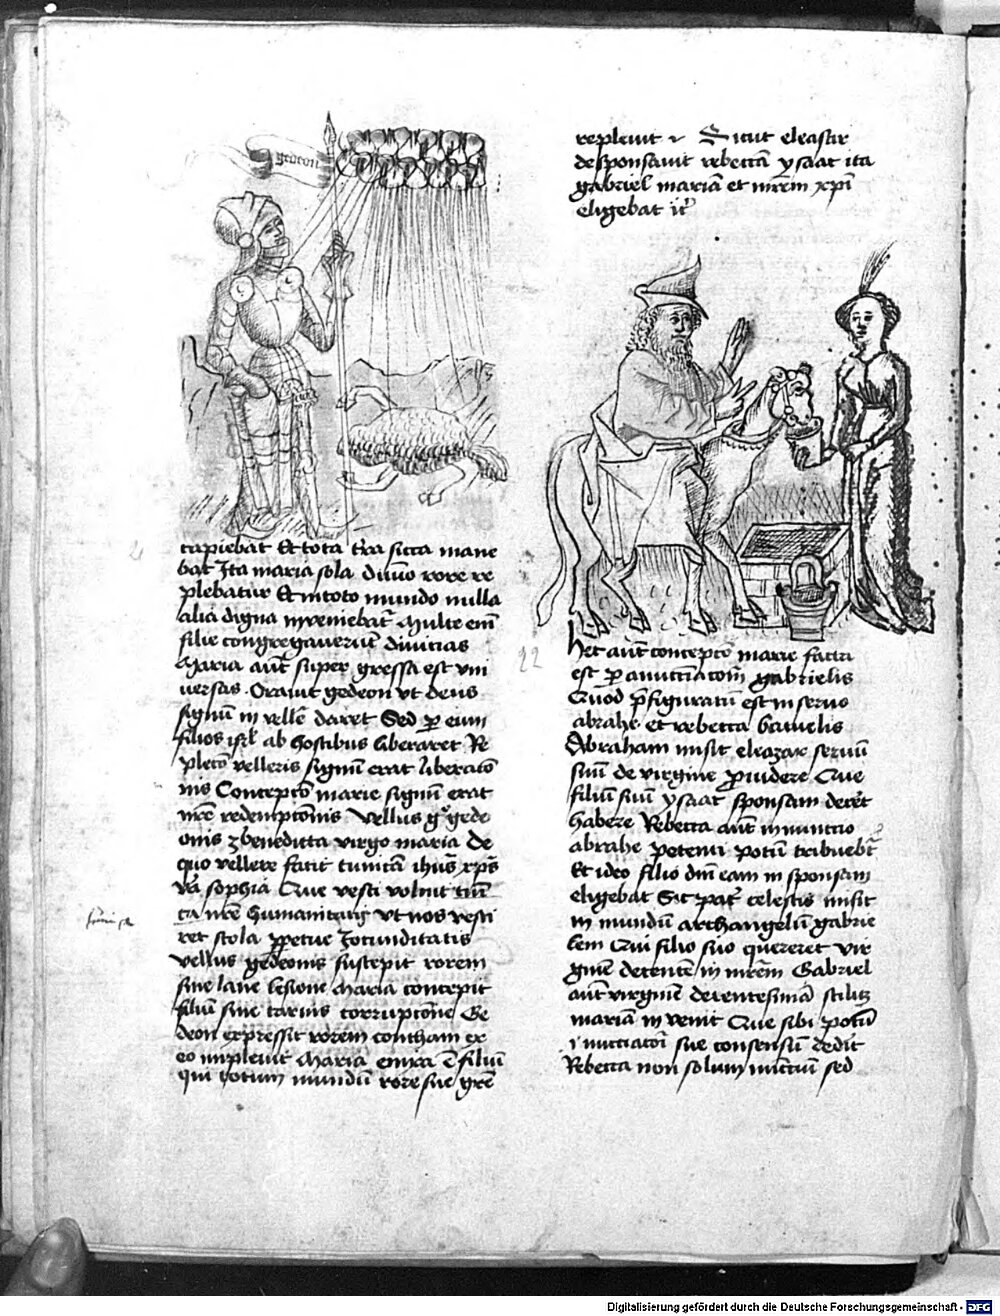 gedeon
capiebat Et tota t̄ra sicca mane
bat Ita maria sola diuīo rore re
plebatur Et in toto mundo nulla
alia digna inveniebat᷑ Multe em̄
filie congregaverūt divicias
Maria aūt super gressa est vni
versas. Oravit gedeon vt deus
signū in velle᷑ daret Sed p̱ eum
filios isr̄l ab hostibus liberaret Re
pletō velleris signū erat liberatō
nis Conceptō marie signū erat
nr̄e redemptōnis Vellus gͦ gede
onis ē benedicta virgo maria de
quo vellere facit tunicā ihūs xp̄s
va᷑ sophia Que vesti voluit tūi
ca nr̄e humanitatis vt nos vesti
ret stola p̱petue Iocunditatis
Vellus gedeonis suscepit rorem
sine lane lesione Maria concepit
filiū sine carnis corruptōne Ge
deon expressit rorem concham ex
eo implevit Maria enixa ē filiū
qui totum mundū rore sue gr̄e
replevit Sicut eleasar
desponsavit rebeccā ysaac ita
gabriel mariā et mr̄em xp̄i
eligebat
21
22
Hec aūt conceptō marie facta
est p̱ anuncciacōm̄ gabrielis
Quod p̄figuratū est in servo
abrahe et rebecca batuelis
Abraham misit eleazar servū
suū de virgine p̱videre Que
filiū suū ysaac sponsam decet᷑
habere Rebecca aūt in nuncio
abrahe petenti potū tribuebt᷑
Et ideo filio dn̄i eam in sponsam
eligebat Sic pat᷑ celestis misit
in mundū archangelū gabrie
lem Qui filio suo quereret vir
ginē decentē in mr̄em Gabriel
aūt virginē decentesimā scilicz
mariā in venit Que sibi potū
i nuncciacōi sue consensū dedit
Rebecca non solum nunctiū sed
Digitalisierung gefördert durch die Deutsche Forschungsgemeinschaft - DFG